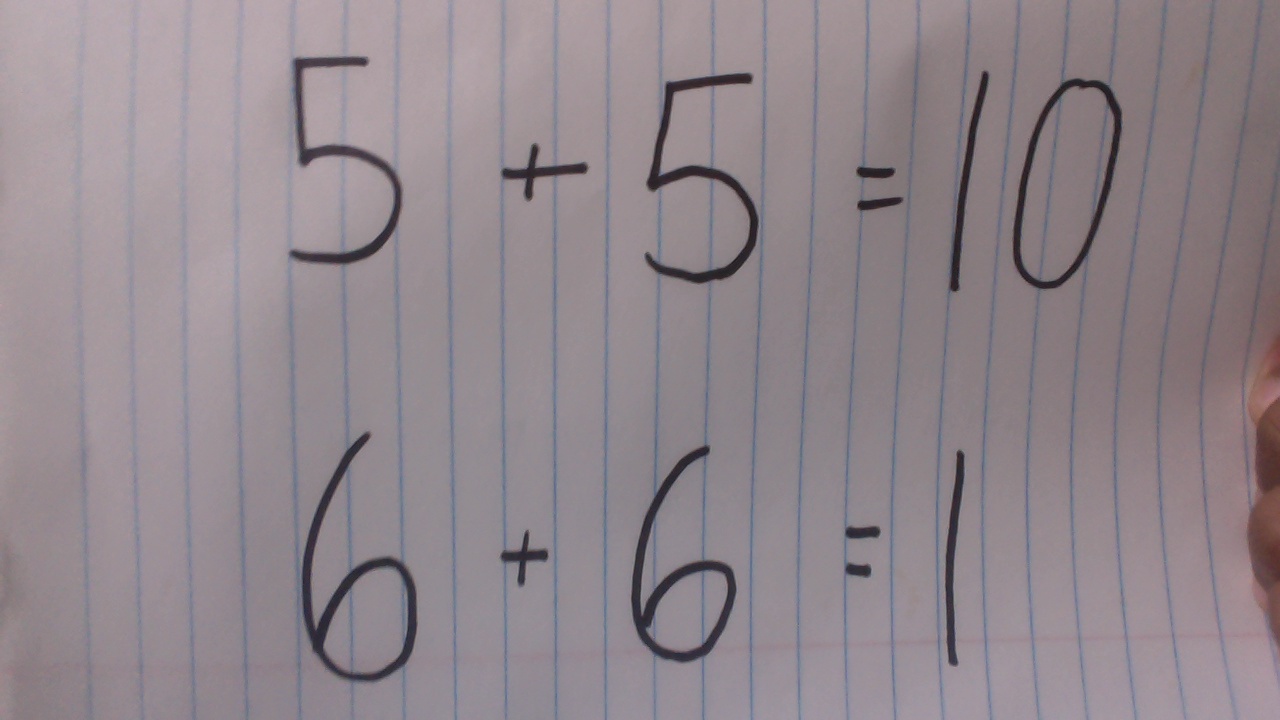 5 + 5 = 10
6 + 6 = 1